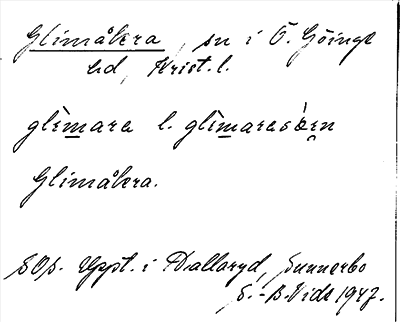 Glimåkra, sn i Ö. Göinge
hd, Krist. l.
glìmara l. glìmaresòkẹn
Glimåkra.
SOÅ. Uppt. i Hallaryd, Sunnerbo
S.-B. Vide 1947.